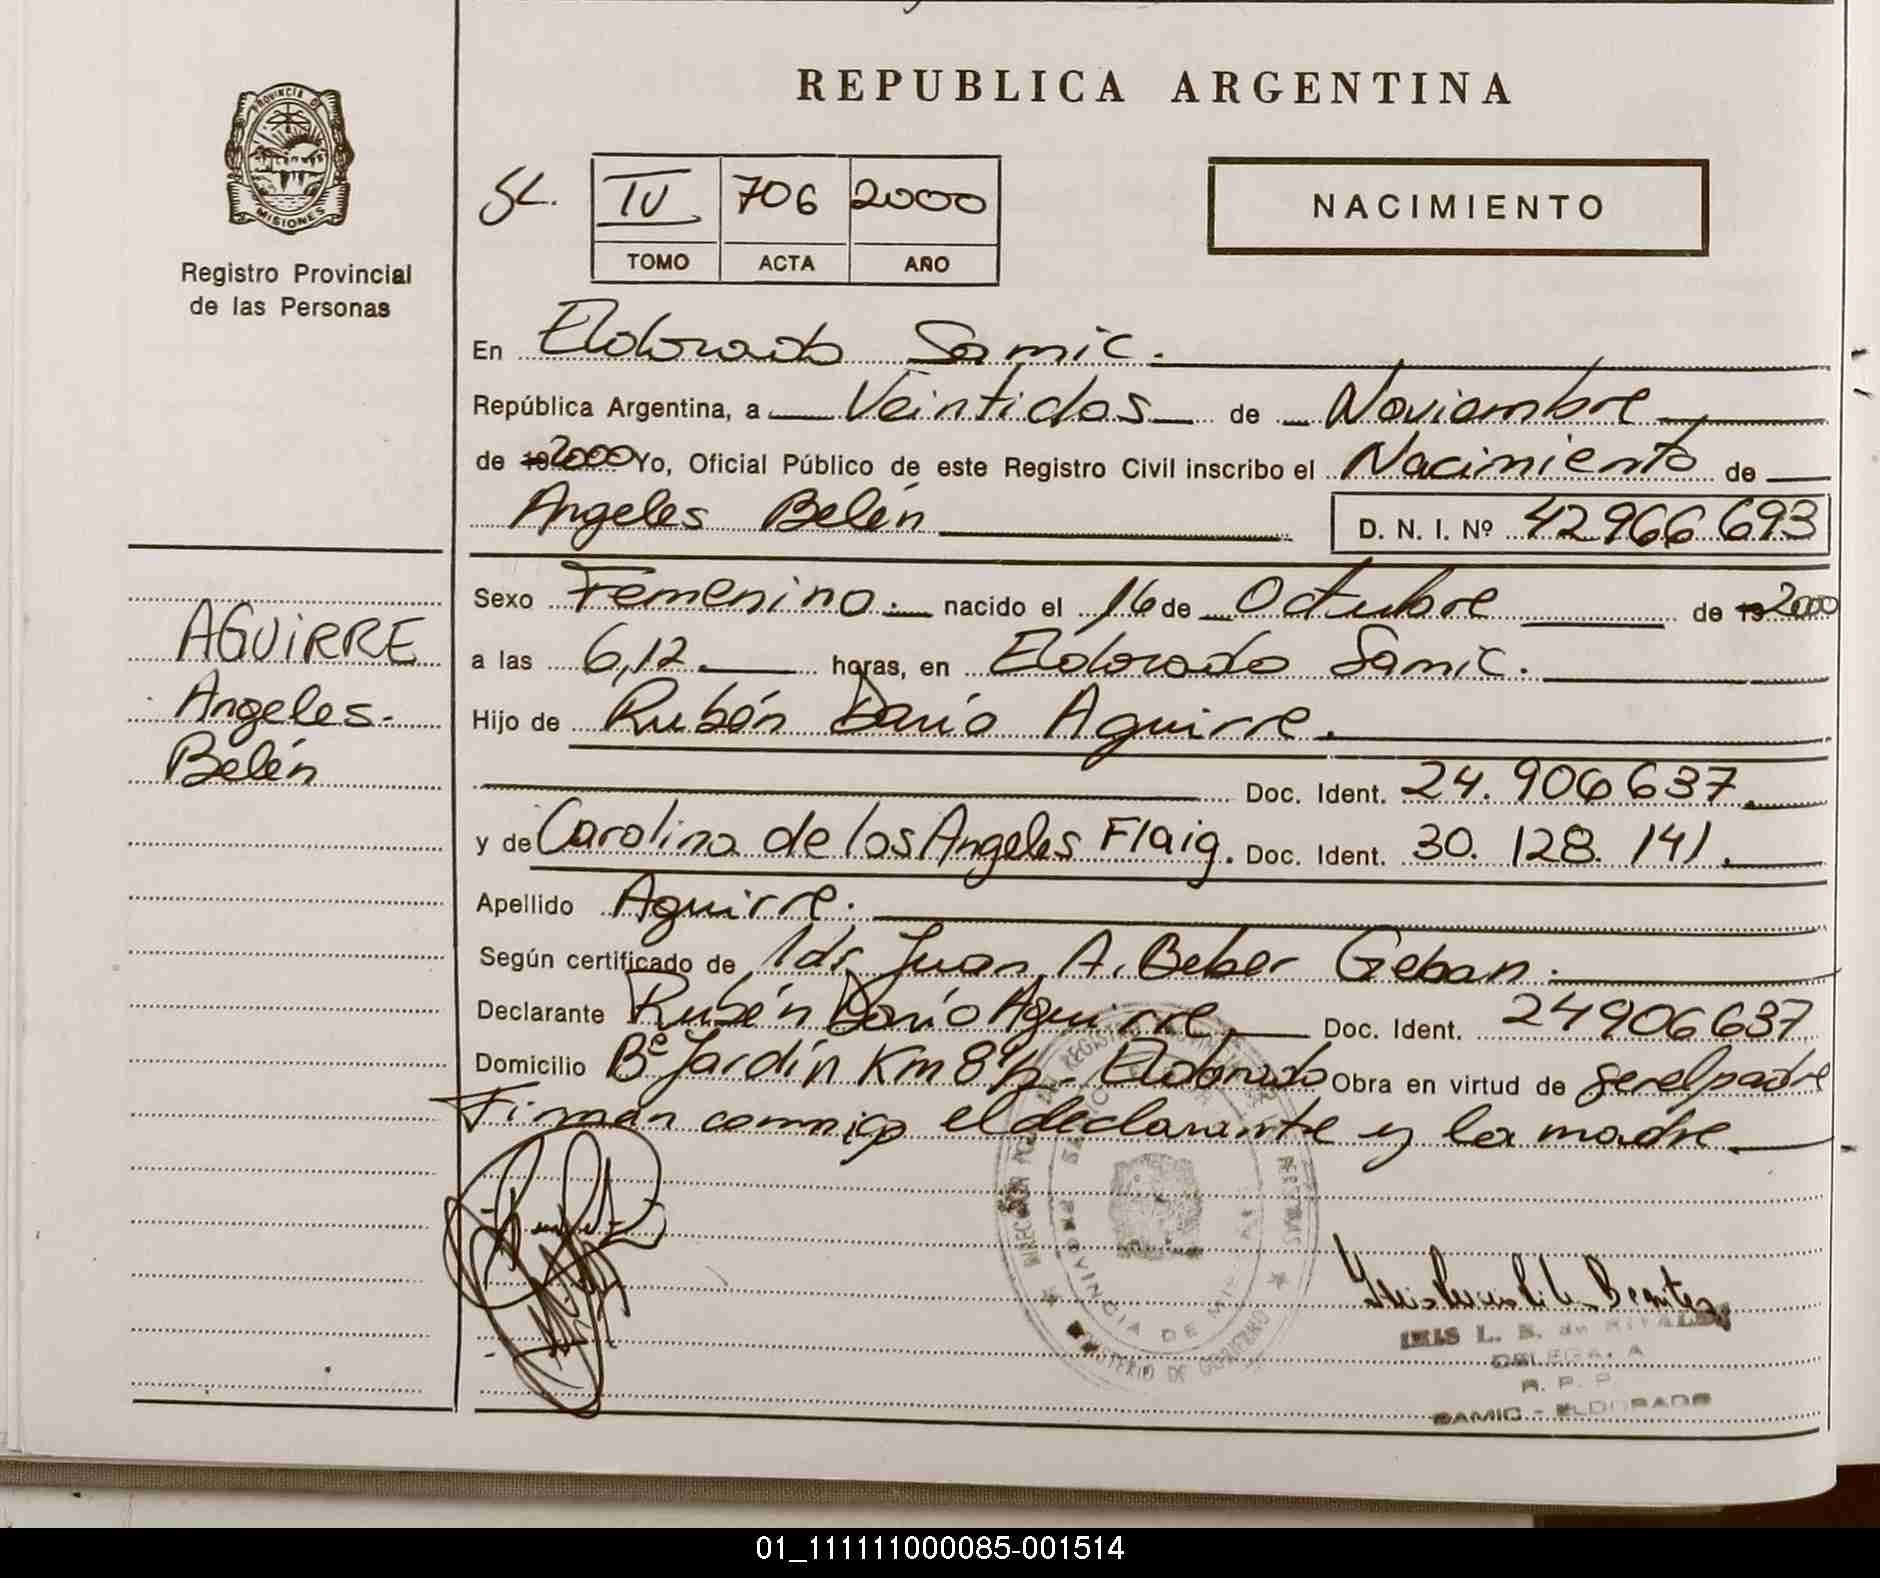 REPUBLICA ARGENTINA
PROVINCIA DE
MISIONES
Registro Provincial
de las Personas
IV 706 2000
TOMO ACTA AÑO
NACIMIENTO
En Eldorado Samic.
República Argentina, a Veintidos de Noviembre
de 19 2000 Yo, Oficial Público de este Registro Civil inscribo el Nacimiento de
Angeles Belén D. N. I. Nº 42966 693
Sexo Femenino. nacido el 16 de Octubre de 19 2000
AGUiRRE
a las 6,12 horas, en Eldorado Samic.
Angeles.
Hijo de Rubén Darío Aguirre.
Belén
Doc. Ident. 24. 906 637.
y de Carolina de los Angeles Flaig. Doc. Ident. 30. 128. 141.
Apellido Aguirre.
Según certificado de Juan A. Beber Geban.
Declarante Rubén Darío Aguirre Doc. Ident. 24906637
Domicilio Bº Jardín Km 8 1/2 - Eldorado Obra en virtud de ser el padre
Firman conmigo el declarante y la madre
PROVINCIA DE
MINISTERIO DE GOBIERNO
Benitez
R. P. P.
SAMIC - ELDORADO
01_111111000085-001514